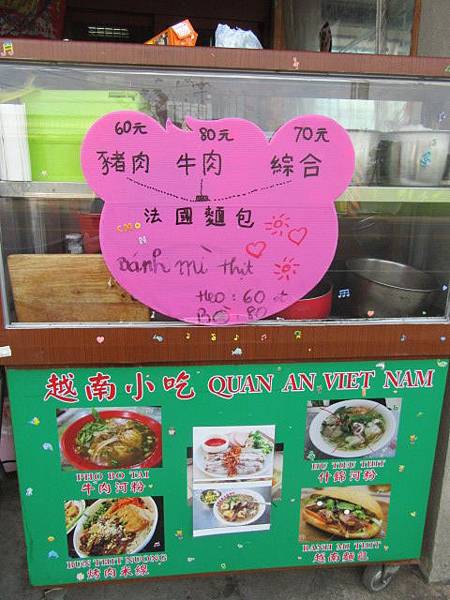 60元 80元 70元
豬肉 牛肉 綜合
法國麵包
Bánh mì thịt
Heo : 60 đ
Bò : 80
越南小吃 QUAN AN VIET NAM
PHO BO TAI
牛肉河粉
HU TIEU THIT
什錦河粉
BUN THIT NUONG
烤肉米線
BANH MI THIT
越南麵包